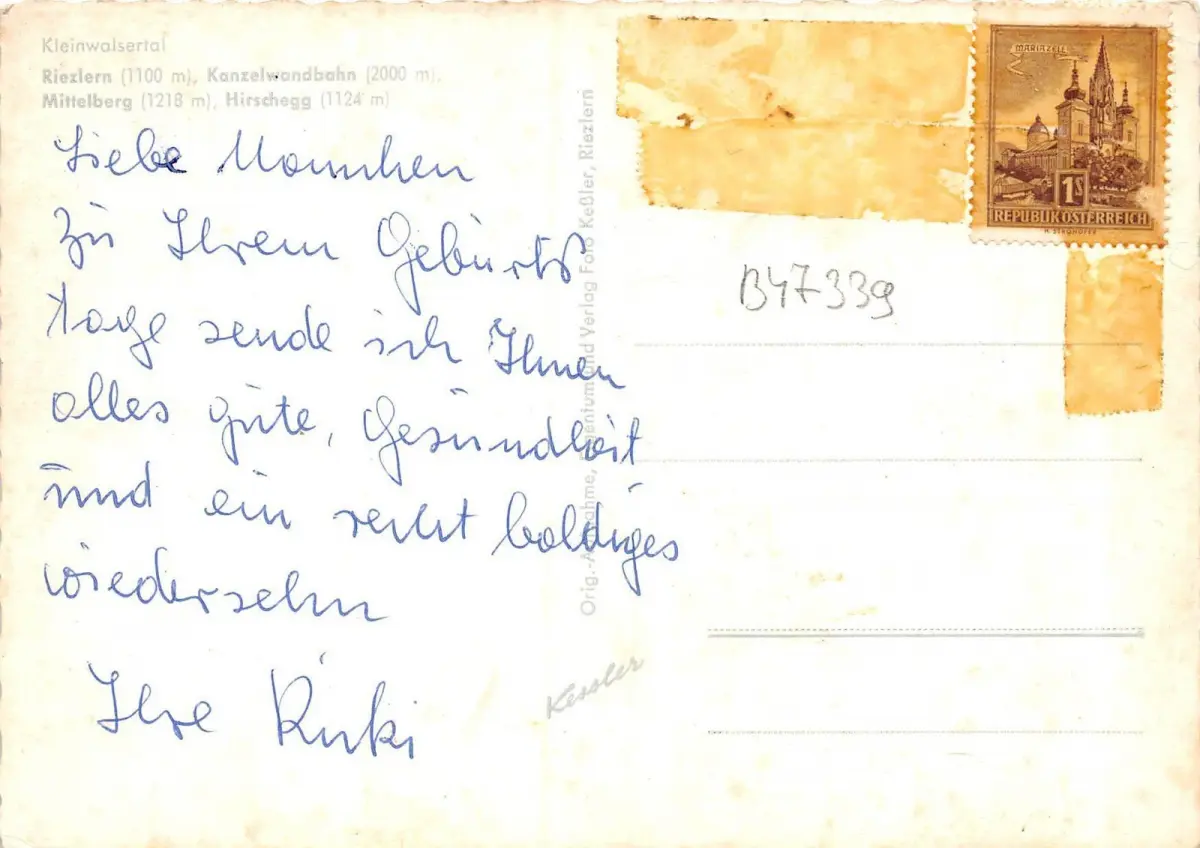 Kleinwalsertal
Riezlern (1100 m), Kanzelwandbahn (2000 m),
Mittelberg (1218 m), Hirschegg (1124 m)
Liebe
Zu Ihrem Geburts
tage sende ich Ihnen
alles gute, Gesundheit
und ein recht baldiges
wiedersehn
Ihre
Orig.-Aufnahme, Eigentum und Verlag Foto Keßler, Riezlern
Kessler
MARIAZELL
1S
REPUBLIK ÖSTERREICH
B47339